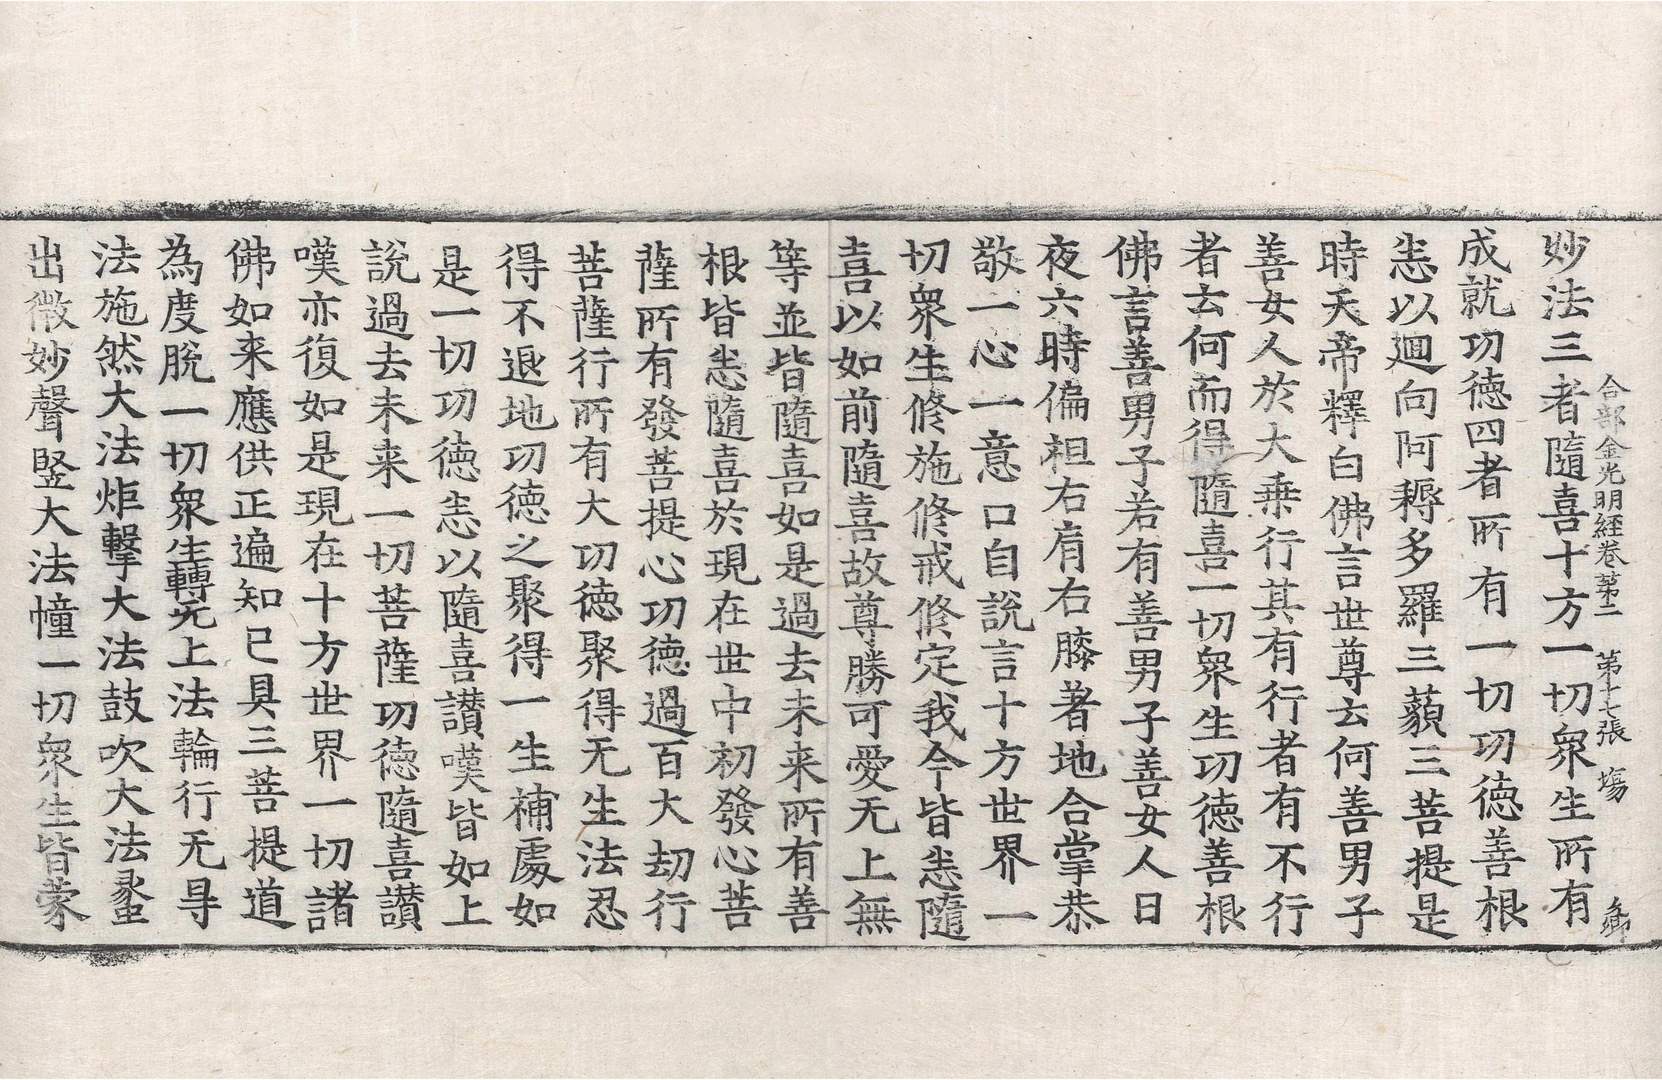 合部金光明經卷第二　第十七張　場　鄉
妙法三者隨喜十方一切衆生所有
成就功德四者所有一切功德善根
悉以迴向阿耨多羅三藐三菩提是
時天帝釋白佛言世尊云何善男子
善女人於大乘行其有行者有不行
者云何而得隨喜一切衆生功德善根
佛言善男子若有善男子善女人日
夜六時偏袒右肩右膝著地合掌恭
敬一心一意口自說言十方世界一
切衆生修施修戒修定我今皆悉隨
喜以如前隨喜故尊勝可愛无上無
等並皆隨喜如是過去未来所有善
根皆悉隨喜於現在世中初發心菩
薩所有發菩提心功德過百大劫行
菩薩行所有大功德聚得无生法忍
得不退地功德之聚得一生補處如
是一切功德悉以隨喜讃嘆皆如上
說過去未来一切菩薩功德隨喜讃
嘆亦復如是現在十方世界一切諸
佛如来應供正遍知已具三菩提道
為度脫一切衆生轉无上法輪行无㝵
法施然大法炬擊大法鼓吹大法䗍
出微妙聲竪大法幢一切衆生皆蒙